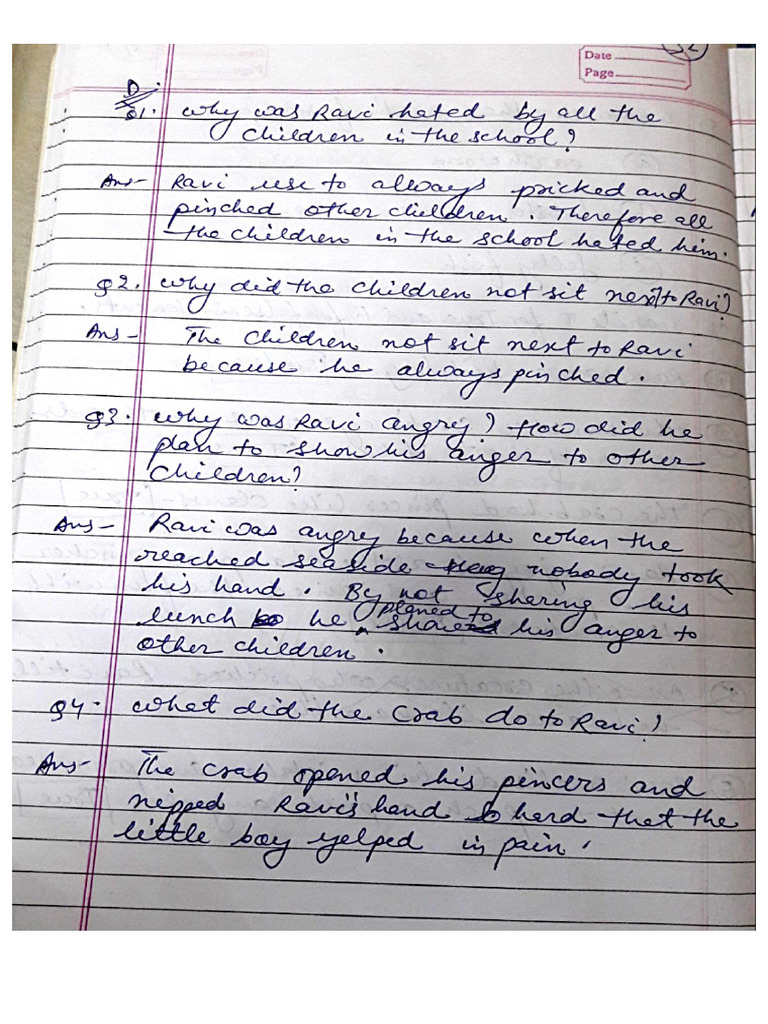 Date
Page
D.
Q1. Why was Ravi hated by all the
children in the school?
Ans- Ravi use to always pricked and
pinched other children. Therefore all
the children in the school hated him.
Q2. Why did the children not sit next to Ravi?
Ans- The children not sit next to Ravi
because he always pinched.
Q3. Why was Ravi angry? How did he
plan to show his anger to other
children?
Ans- Ravi was angry because when the
reached seaside nobody took
his hand. By not sharing his
lunch he planed to show his anger to
other children.
Q4. What did the Crab do to Ravi?
Ans- The crab opened his pincers and
nipped Ravi's hand so hard that the
little boy yelped in pain.